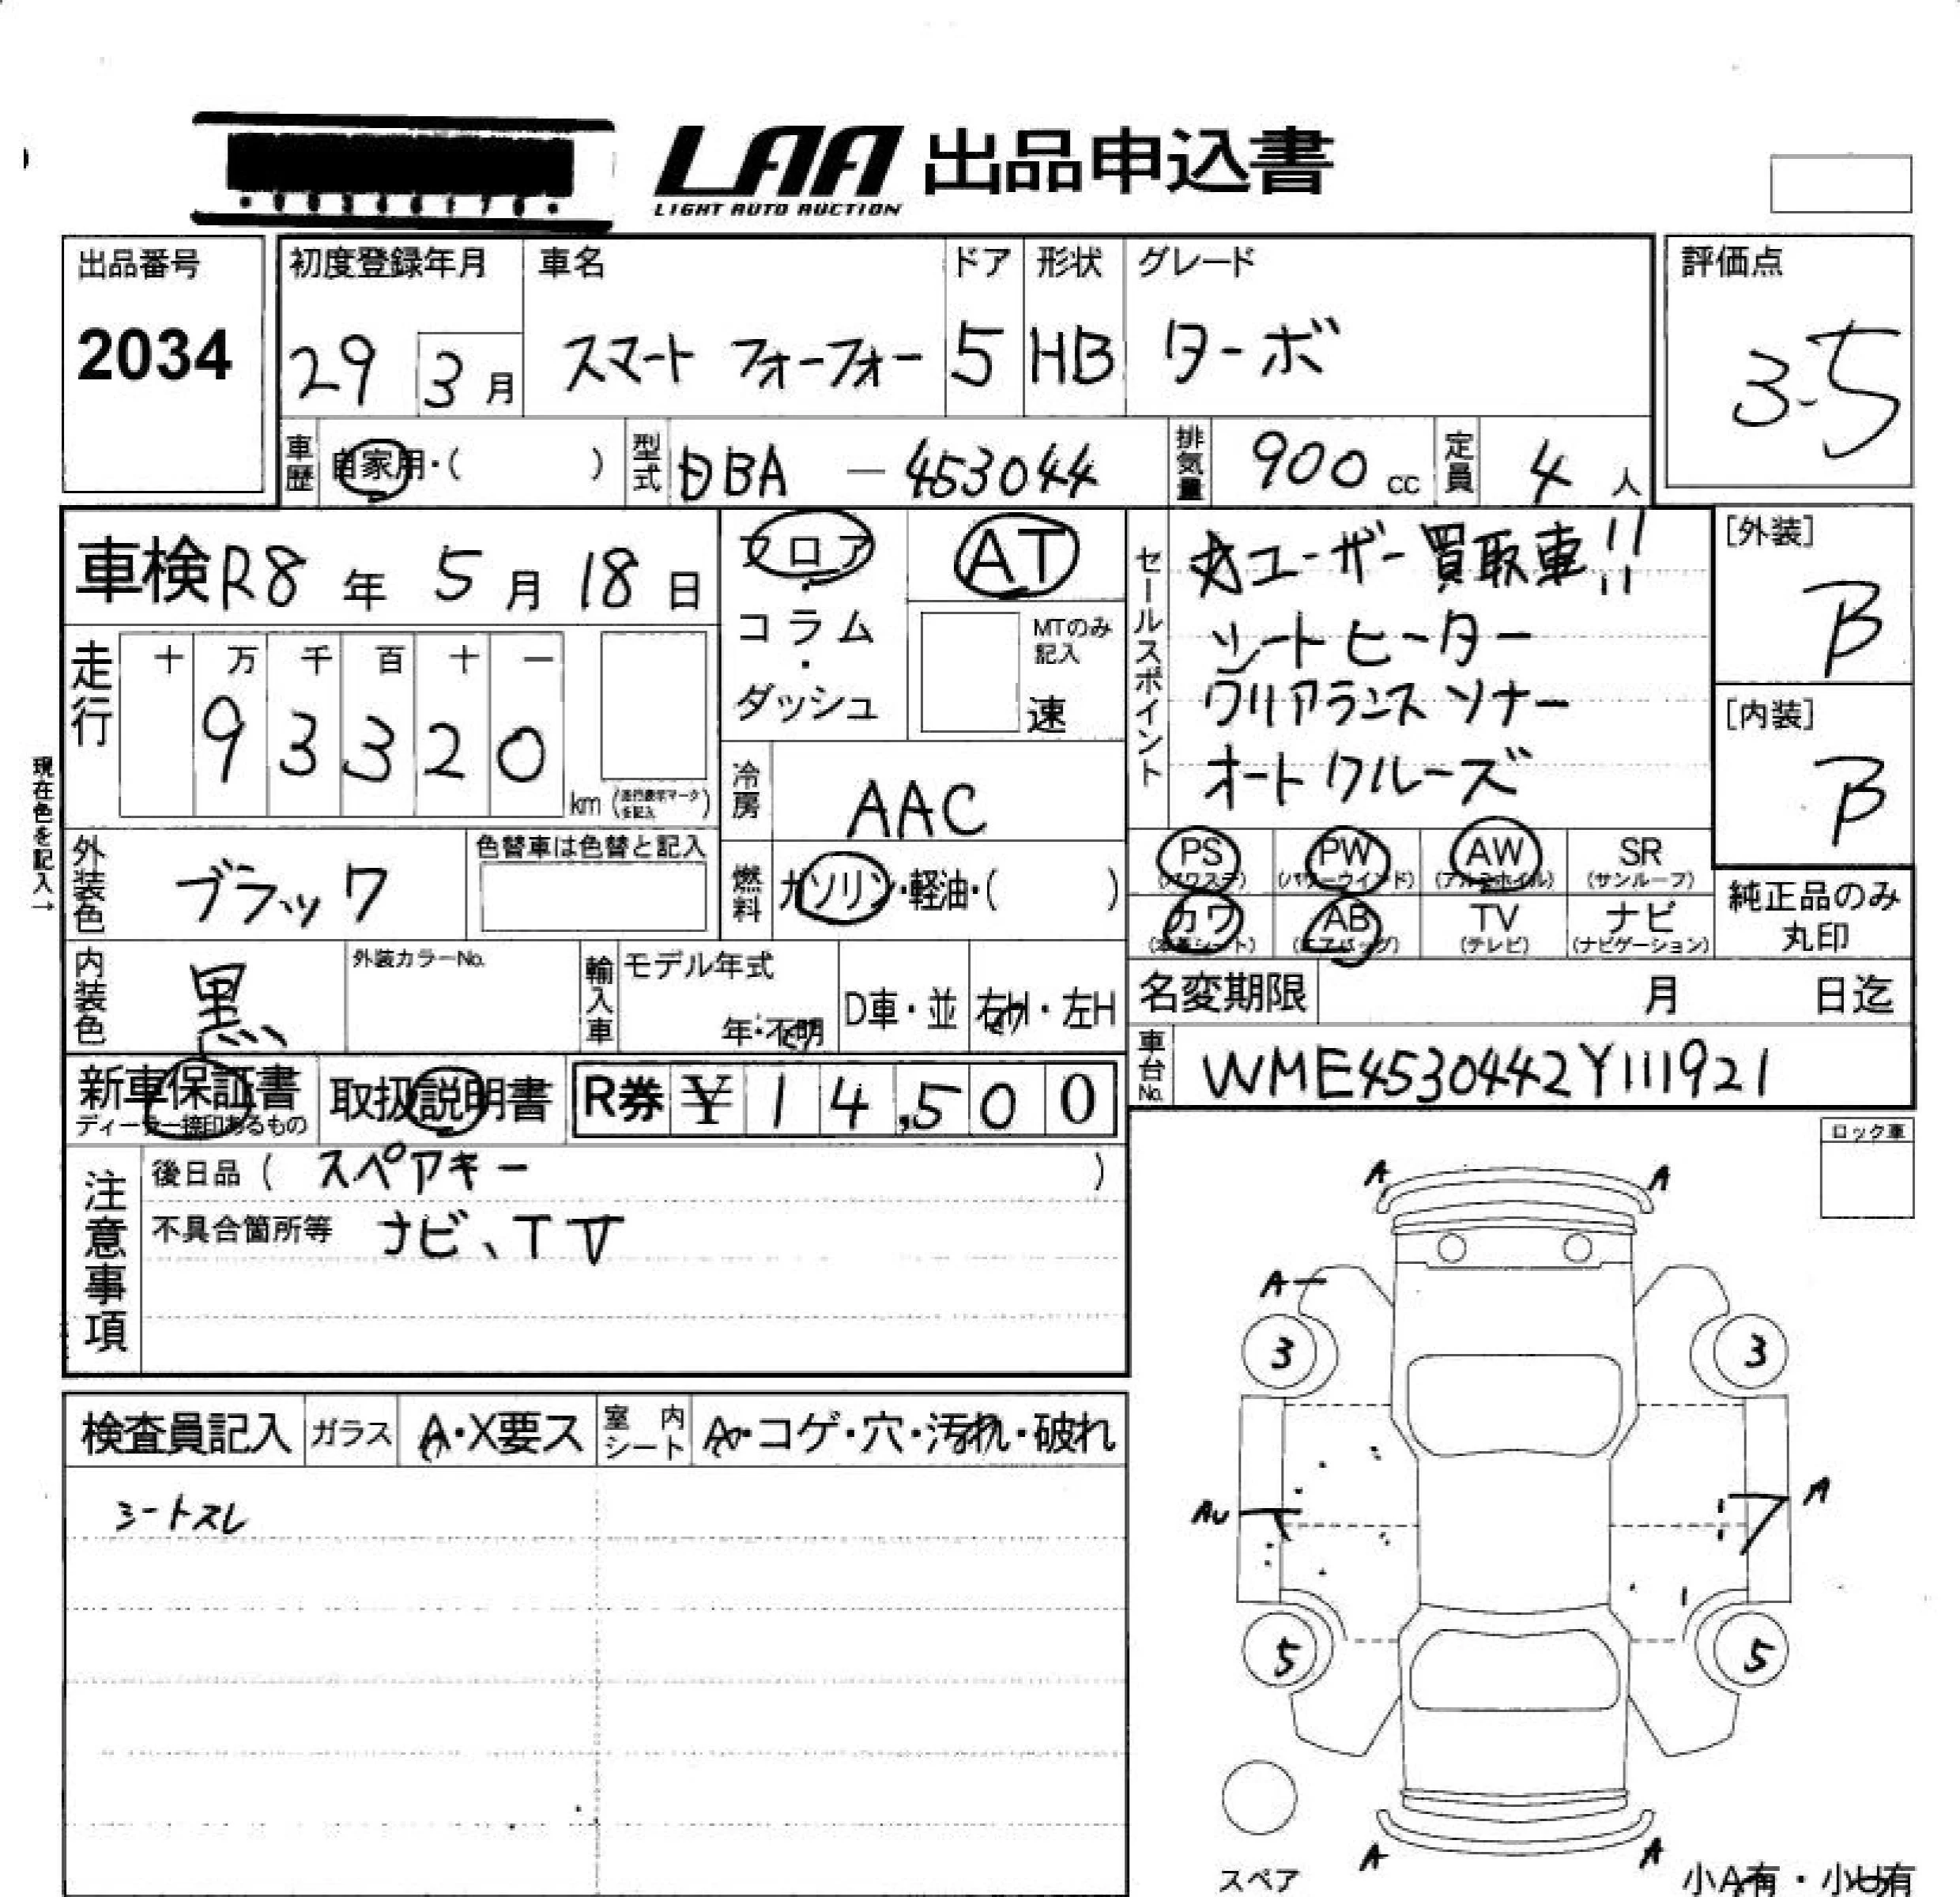 LAA 出品申込書
LIGHT AUTO AUCTION
出品番号
2034
初度登録年月
29 3月
車名
スマート フォーフォー
ドア
5
形状
HB
グレード
ターボ
評価点
3.5
車歴
自家用・( )
型式
DBA - 453044
排気量
900 cc
定員
4 人
車検 R8 年 5 月 18 日
フロア
・
コラム
・
ダッシュ
AT
MTのみ
記入
速
セールスポイント
ユーザー買取車!!
シートヒーター
クリアランスソナー
オートクルーズ
[外装]
B
[内装]
B
走行
十 万 千 百 十 一
9 3 3 2 0
km (走行表示マークを記入)
冷房
AAC
現在色を記入→
外装色
ブラック
色替車は色替と記入
燃料
ガソリン・軽油・( )
PS
(パワステ)
PW
(パワーウインド)
AW
(アルミホイル)
SR
(サンルーフ)
カワ
(本革シート)
AB
(エアバッグ)
TV
(テレビ)
ナビ
(ナビゲーション)
純正品のみ
丸印
内装色
黒
外装カラーNo.
輸入車
モデル年式
年・不明
D車・並
右H・左H
名変期限
月 日迄
車台No.
WME4530442Y111921
新車保証書
ディーラー捺印あるもの
取扱説明書
R券 ¥ 14,500
注意事項
後日品 ( スペアキー )
不具合箇所等 ナビ、TV
ロック車
A A
A
3 3
AU A
5 5
A A
スペア
小A有・小U有
検査員記入
ガラス
A・X要ス
室内シート
A・コゲ・穴・汚れ・破れ
シートスレ